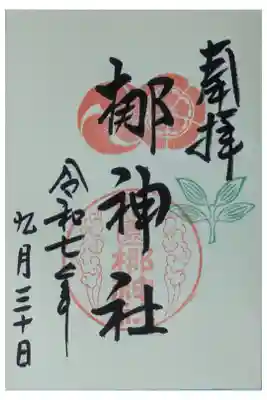 奉拝
梛神社
令和七年
九月三十日
梛神社